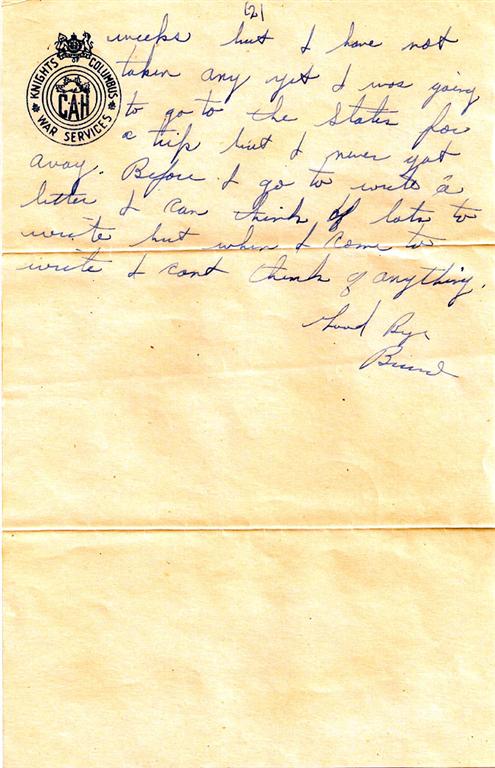 (2)
KNIGHTS OF COLUMBUS
CAH
WAR SERVICES
weeks but I have not
taken any yet I was going
to go to the States for
a trip but I never got
away. Before I go to write a
letter I can think of lots to
write but when I come to
write I cant think of anything.
Good Bye